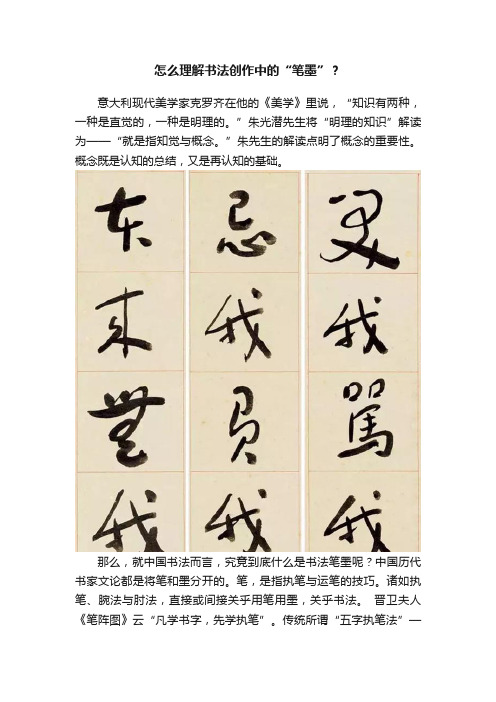 怎么理解书法创作中的“笔墨”？
意大利现代美学家克罗齐在他的《美学》里说，“知识有两种，
一种是直觉的，一种是明理的。”朱光潜先生将“明理的知识”解读
为——“就是指知觉与概念。”朱先生的解读点明了概念的重要性。
概念既是认知的总结，又是再认知的基础。
我罵我
忌我負我
来無我
那么，就中国书法而言，究竟到底什么是书法笔墨呢？中国历代
书家文论都是将笔和墨分开的。笔，是指执笔与运笔的技巧。诸如执
笔、腕法与肘法，直接或间接关乎用笔用墨，关乎书法。 晋卫夫人
《笔阵图》云“凡学书字，先学执笔”。传统所谓“五字执笔法”—